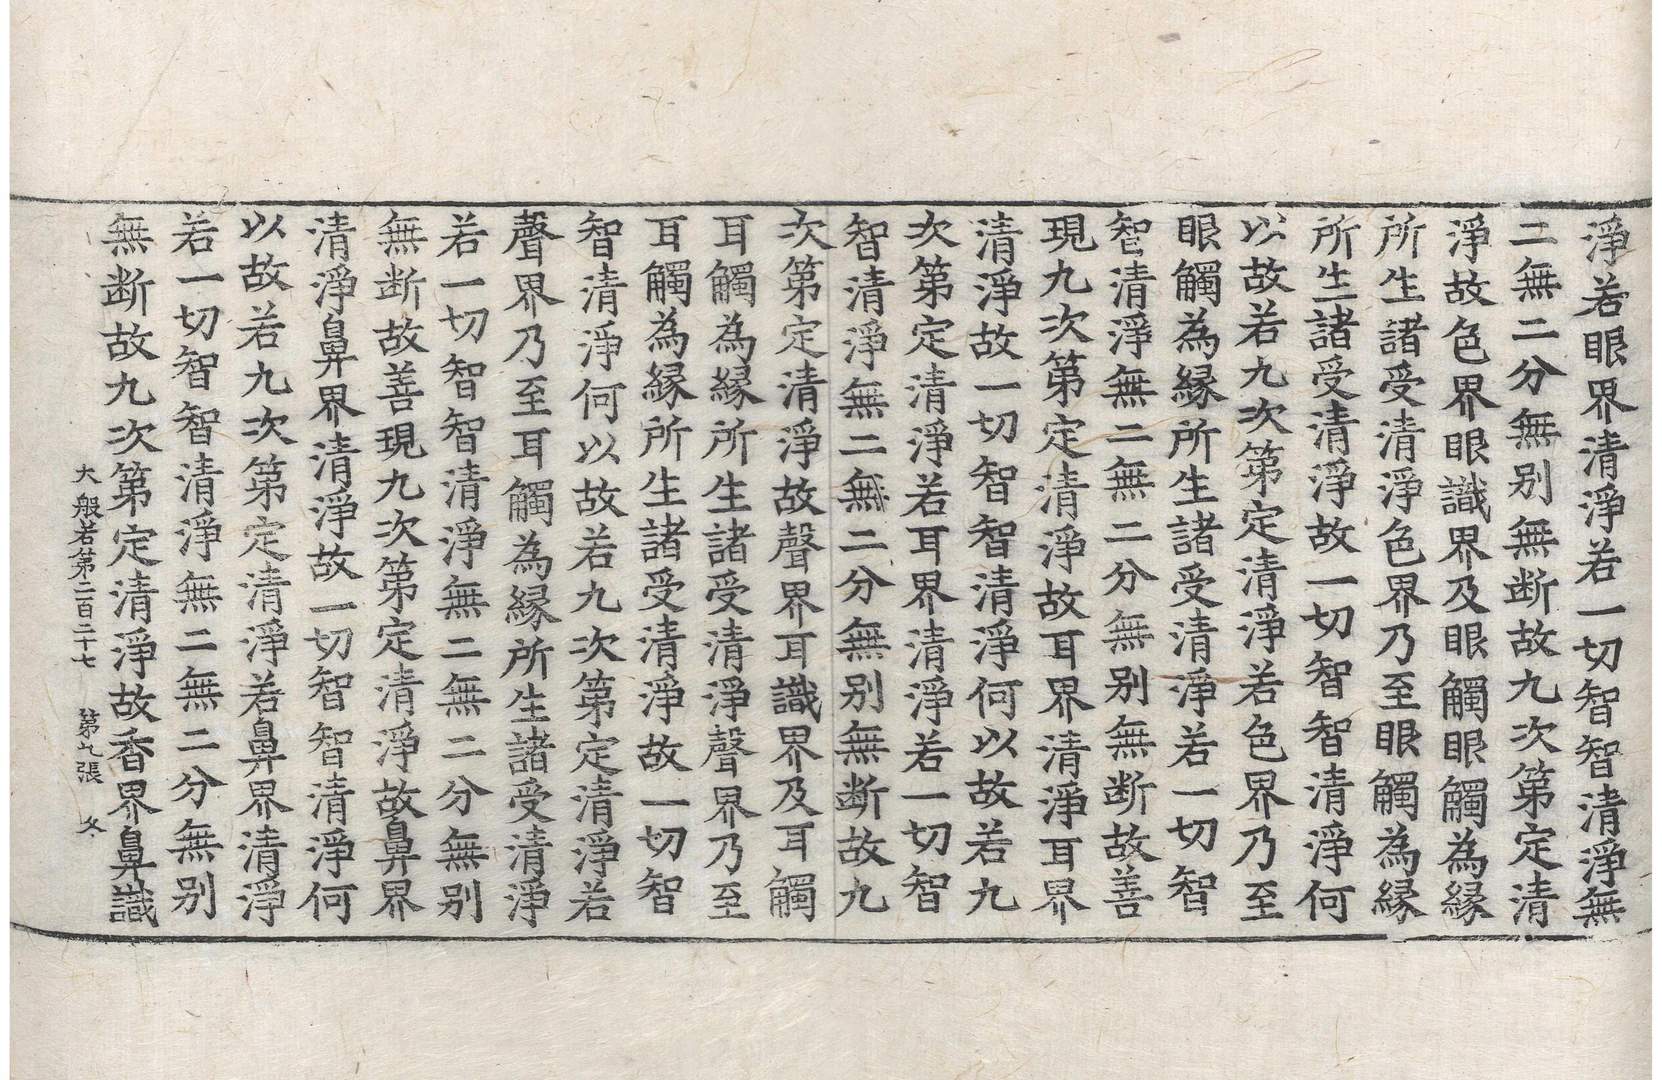 淨若眼界清淨若一切智智清淨無
二無二分無别無断故九次第定清
淨故色界眼識界及眼觸眼觸為縁
所生諸受清淨色界乃至眼觸為縁
所生諸受清淨故一切智智清淨何
以故若九次第定清淨若色界乃至
眼觸為縁所生諸受清淨若一切智
智清淨無二無二分無别無断故善
現九次第定清淨故耳界清淨耳界
清淨故一切智智清淨何以故若九
次第定清淨若耳界清淨若一切智
智清淨無二無二分無别無断故九
次第定清淨故聲界耳識界及耳觸
耳觸為縁所生諸受清淨聲界乃至
耳觸為縁所生諸受清淨故一切智
智清淨何以故若九次第定清淨若
聲界乃至耳觸為縁所生諸受清淨
若一切智智清淨無二無二分無别
無断故善現九次第定清淨故鼻界
清淨鼻界清淨故一切智智清淨何
以故若九次第定清淨若鼻界清淨
若一切智智清淨無二無二分無别
無断故九次第定清淨故香界鼻識
大般若第二百二十七 第九張 冬